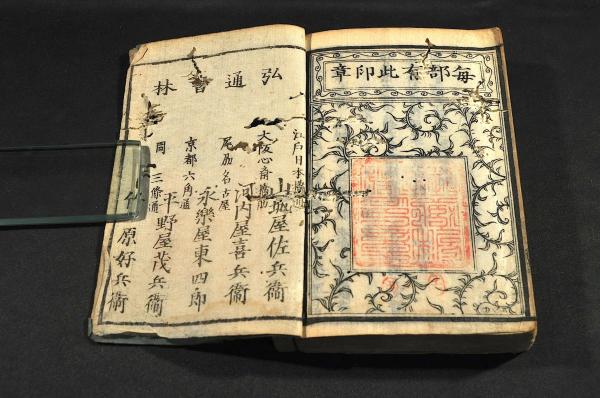 每部有此印章
弘通書林
江戶日本橋通
山城屋佐兵衞
大阪心斎橋筋
河内屋喜兵衞
尾刕名古屋
永樂屋東四郎
京都六角通
平野屋茂兵衞
同 三條通
原好兵衞